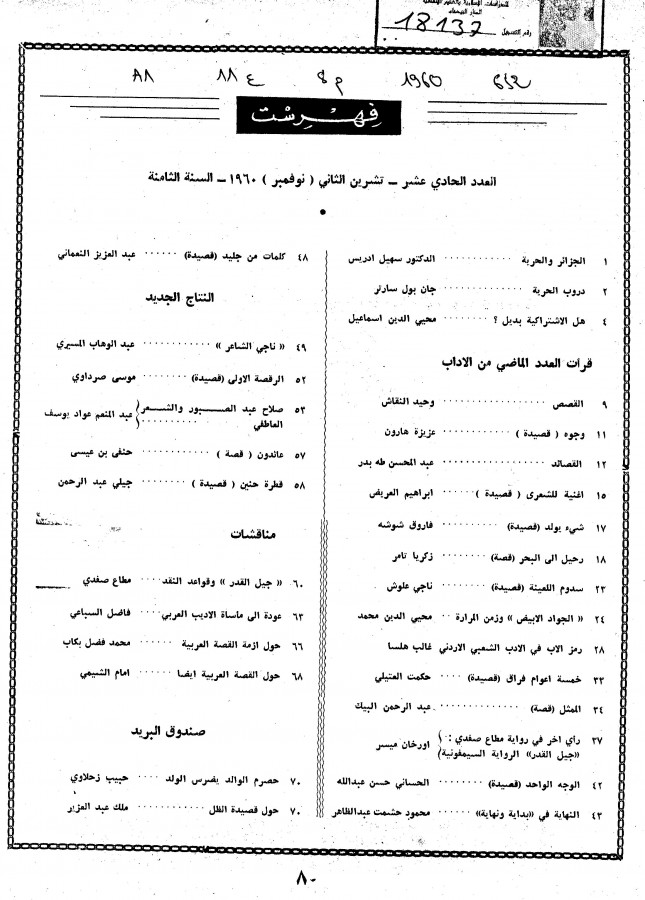 رقم التسجيل 18137
٨٨ ع ١١ م ٨ 1960
فهرست
العدد الحادي عشر – تشرين الثاني ( نوفمبر ) ١٩٦٠ – السنة الثامنة
١ الجزائر والحرية ٠٠٠٠٠٠٠٠٠ الدكتور سهيل ادريس
٢ دروب الحرية ٠٠٠٠٠٠٠٠٠ جان بول سارتر
٤ هل الاشتراكية بديل ؟ ٠٠٠٠٠٠ محيي الدين اسماعيل
قرأت العدد الماضي من الاداب
٩ القصص ٠٠٠٠٠٠٠٠٠ وحيد النقاش
١١ وجوه ( قصيدة ) ٠٠٠٠٠٠٠٠٠ عزيزة هارون
١٢ القصائد ٠٠٠٠٠٠٠٠٠ عبد المحسن طه بدر
١٥ اغنية للشعرى ( قصيدة ) ٠٠٠٠٠٠ ابراهيم العريض
١٧ شيء يولد (قصيدة) ٠٠٠٠٠٠٠٠٠ فاروق شوشه
١٨ رحيل الى البحر (قصة) ٠٠٠٠٠٠ زكريا تامر
٢٣ سدوم اللعينة (قصيدة) ٠٠٠٠٠٠ ناجي علوش
٢٤ « الجواد الابيض » وزمن المرارة ٠٠ محيي الدين محمد
٢٨ رمز الاب في الادب الشعبي الاردني غالب هلسا
٣٣ خمسة اعوام فراق (قصيدة) ٠٠٠٠ حكمت العتيلي
٣٤ الممثل (قصة) ٠٠٠٠٠٠٠٠٠ عبد الرحمن البيك
٣٧ رأي اخر في رواية مطاع صفدي :
«جيل القدر» الرواية السيمفونية اورخان ميسر
٤٢ الوجه الواحد (قصيدة) ٠٠٠٠٠٠٠ الحساني حسن عبدالله
٤٣ النهاية في «بداية ونهاية» ٠٠٠٠٠ محمود حشمت عبدالظاهر
٤٨ كلمات من جليد (قصيدة) ٠٠٠٠٠٠ عبد العزيز النعماني
النتاج الجديد
٤٩ « ناجي الشاعر » ٠٠٠٠٠٠٠٠٠ عبد الوهاب المسيري
٥٢ الرقصة الاولى (قصيدة) ٠٠٠٠٠٠ موسى صرداوي
٥٣ صلاح عبد الصبور والشعر
العاطفي ٠٠٠٠٠٠٠٠٠ عبد المنعم عواد يوسف
٥٧ عائدون ( قصة ) ٠٠٠٠٠٠٠٠٠ حنفي بن عيسى
٥٨ قطرة حنين ( قصيدة ) ٠٠٠٠٠٠ جيلي عبد الرحمن
مناقشات
٦٠ « جيل القدر » وقواعد النقد ٠٠٠٠ مطاع صفدي
٦٣ عودة الى مأساة الاديب العربي ٠٠٠٠ فاضل السباعي
٦٦ حول ازمة القصة العربية ٠٠٠٠٠٠ محمد فضل بكاب
٦٨ حول القصة العربية ايضا ٠٠٠٠٠٠ امام الشيمي
صندوق البريد
٧٠ حصرم الوالد يضرس الولد ٠٠٠٠ حبيب زحلاوي
٧٠ حول قصيدة الظل ٠٠٠٠٠٠٠٠٠ ملك عبد العزيز
٨٠